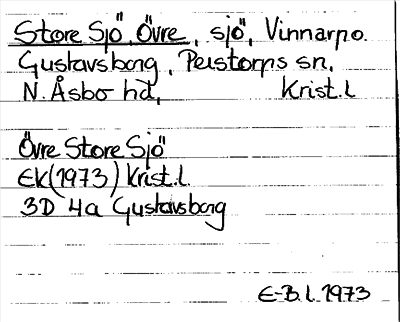 Store Sjö, Övre, sjö, Vinnarpo.
Gustavsborg, Perstorps sn,
N. Åsbo hd, Krist.l
Övre Store Sjö
EK(1973) Krist.l.
3D 4a Gustavsborg
E-B.L.1973